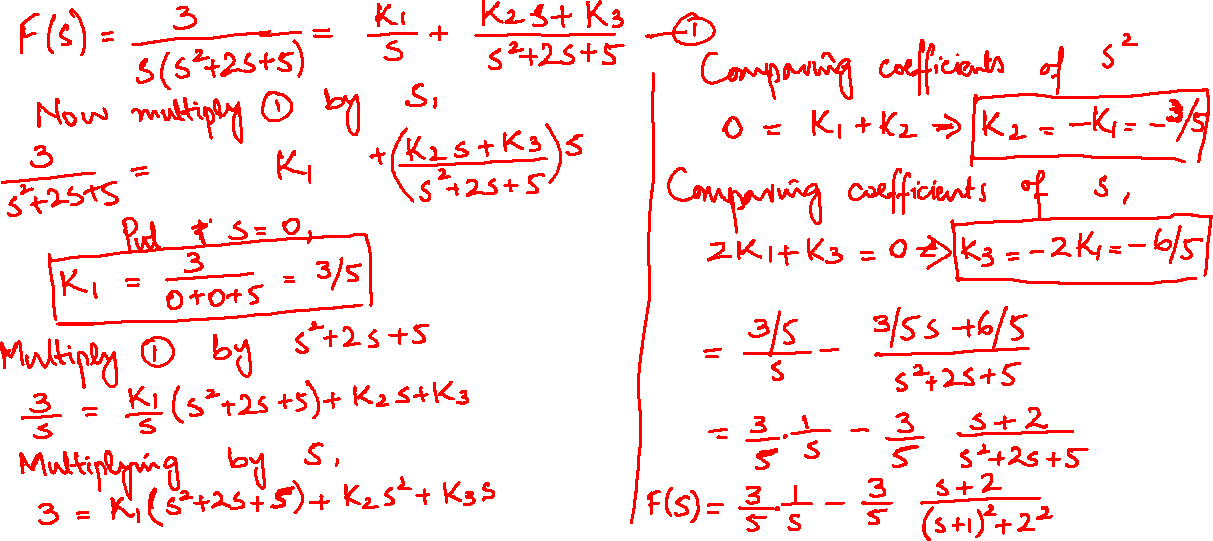 F(s) = 3/(s(s²+2s+5)) = K₁/s + (K₂s+K₃)/(s²+2s+5) —①
Now multiply ① by s,
3/(s²+2s+5) = K₁ + ((K₂s+K₃)/(s²+2s+5))s
Put s=0,
K₁ = 3/(0+0+5) = 3/5
Multiply ① by s²+2s+5
3/s = K₁/s (s²+2s+5) + K₂s+K₃
Multiplying by s,
3 = K₁(s²+2s+5) + K₂s² + K₃s
Comparing coefficients of s²
0 = K₁+K₂ ⇒ K₂ = -K₁ = -3/5
Comparing coefficients of s,
2K₁+K₃ = 0 ⇒ K₃ = -2K₁ = -6/5
= (3/5)/s - (3/5s+6/5)/(s²+2s+5)
= 3/5 · 1/s - 3/5 (s+2)/(s²+2s+5)
F(s) = 3/5 · 1/s - 3/5 (s+2)/((s+1)²+2²)